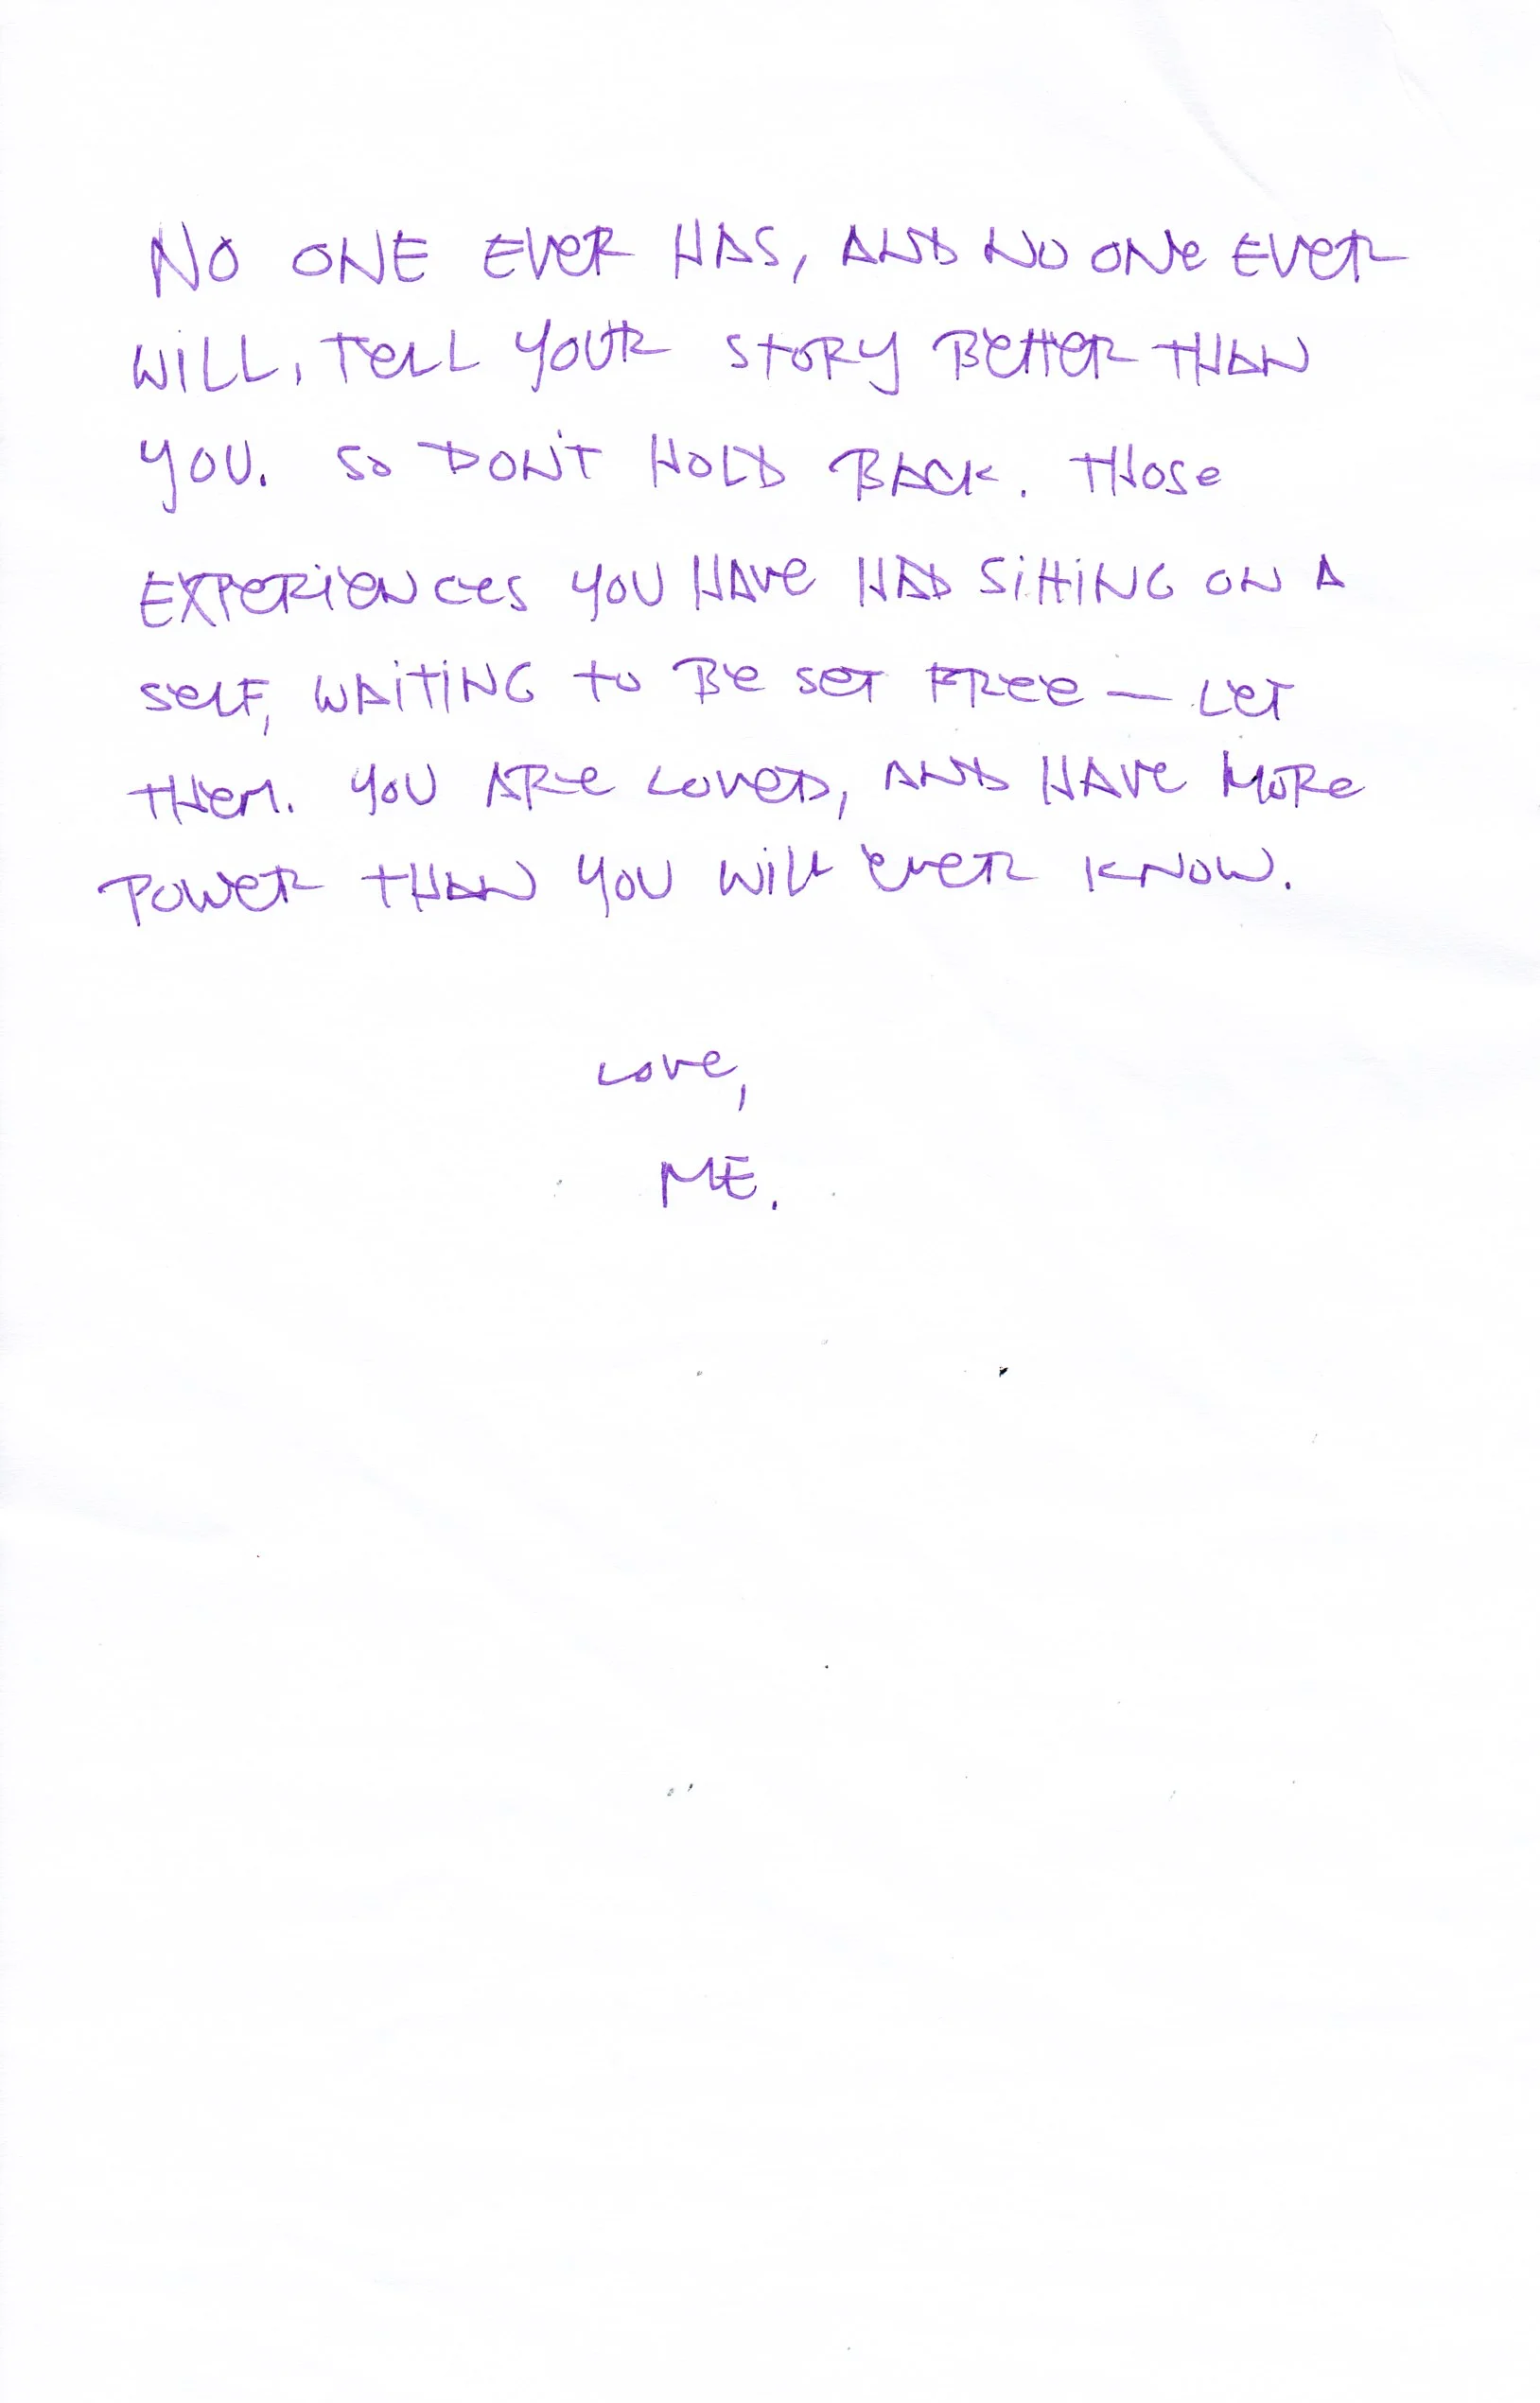 NO ONE EVER HAS, AND NO ONE EVER
WILL, TELL YOUR STORY BETTER THAN
YOU. SO DON'T HOLD BACK. THOSE
EXPERIENCES YOU HAVE HAD SITTING ON A
SELF, WAITING TO BE SET FREE — LET
THEM. YOU ARE LOVED, AND HAVE MORE
POWER THAN YOU WILL EVER KNOW.
LOVE,
ME.